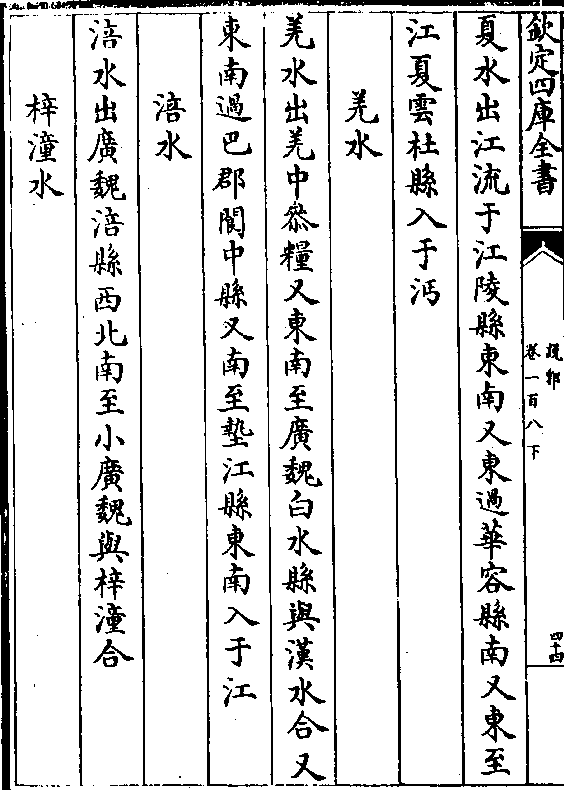 欽定四庫全書
說郛
卷一百八下
四十四
夏水出江流于江陵縣東南又東過華容縣南又東至
江夏雲杜縣入于沔
羌水
羌水出羌中叅糧又東南至廣魏白水縣與漢水合又
東南過巴郡閬中縣又南至墊江縣東南入于江
涪水
涪水出廣魏涪縣西北南至小廣魏與梓潼合
梓潼水